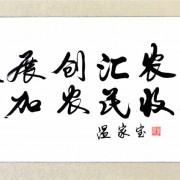 展创汇农
加农民收
温家宝